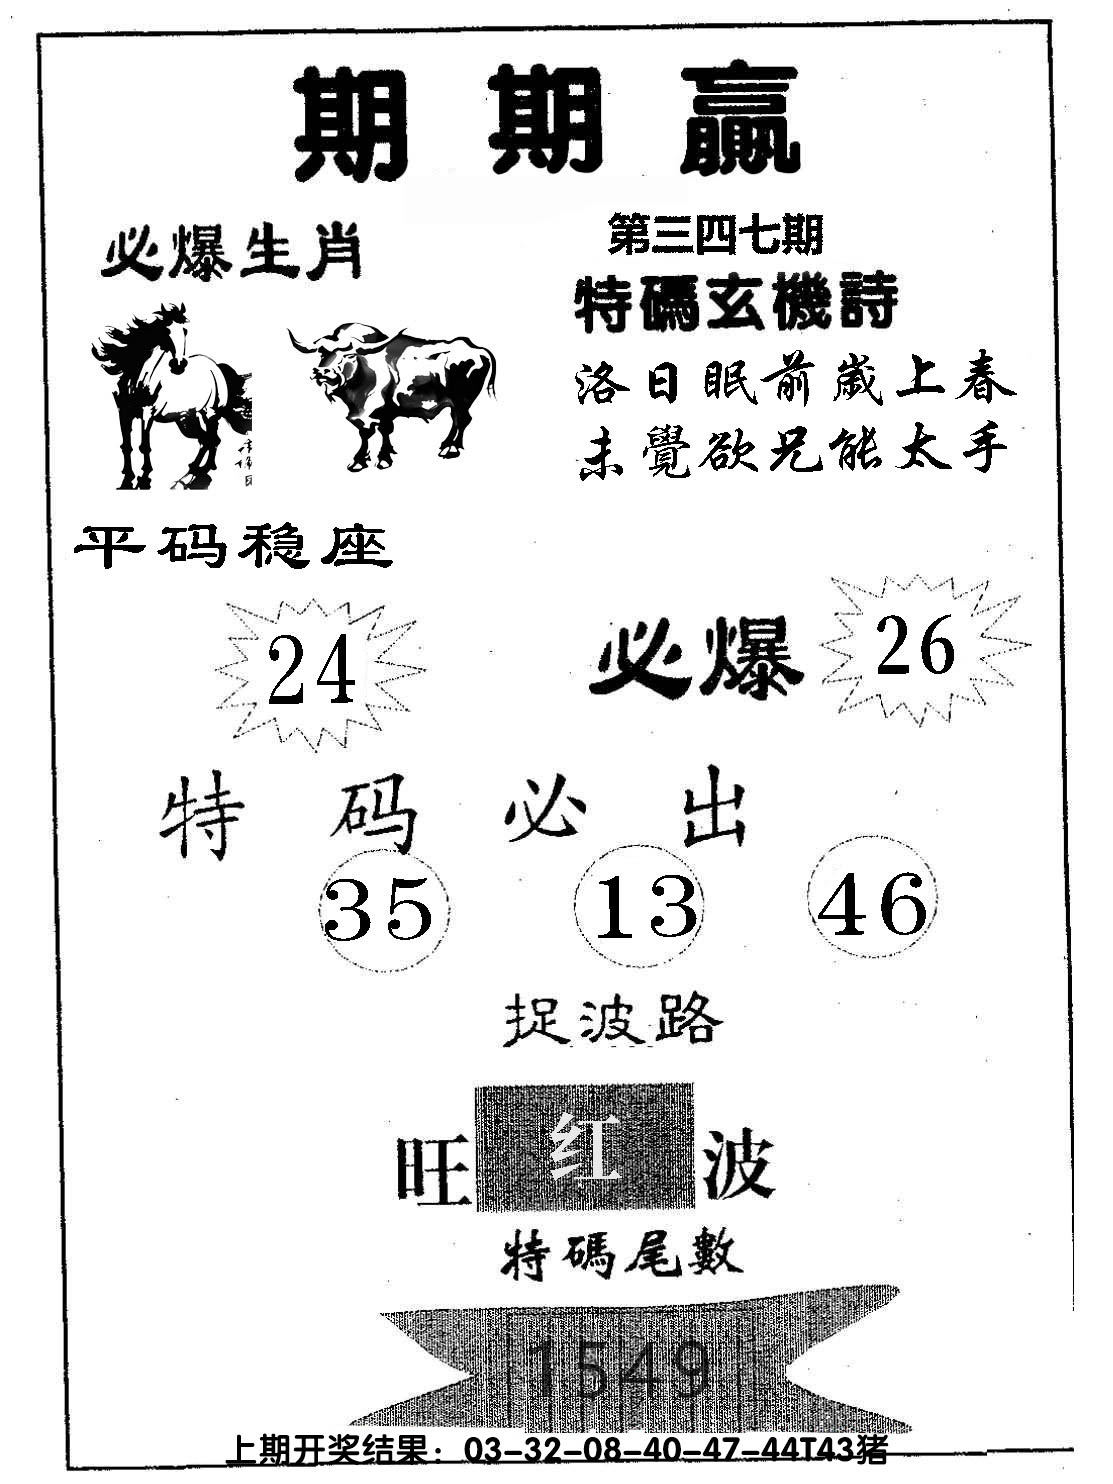 期期赢
必爆生肖
第三四七期
特碼玄機詩
洛日眠前歲上春
未覺欲兄能太手
平码稳座
24
必爆 26
特码必出
35 13 46
捉波路
旺红波
特碼尾數
1549
上期开奖结果：03-32-08-40-47-44T43猪